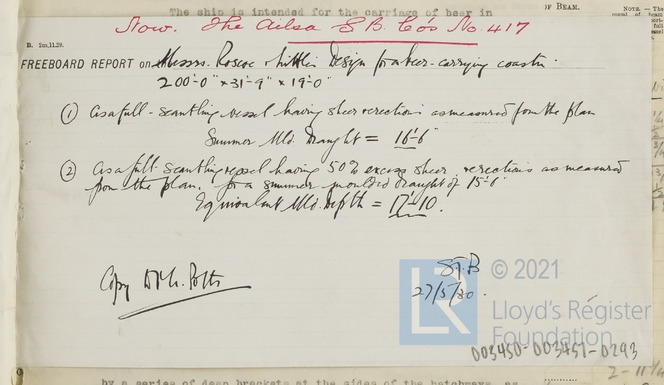 The ship is intended for the carriage of beer in
OF BEAM.
NOTE. — The
Now. The Ailsa S.B. Co's No. 417
B. 2m,11,29.
FREEBOARD REPORT on Messrs. Roscoe & Little's Design for a beer-carrying coaster.
200'-0" × 31'-9" × 19'-0"
(1) As a full-scantling vessel having sheer & erections as measured from the plan
Summer Mld. Draught = 16'-6"
(2) As a full-scantling vessel having 50% excess sheer & erections as measured
from the plan, for a summer moulded draught of 15'-6"
Equivalent Mld. Depth = 17'-10.
Copy
27/5/30.
© 2021
LR
Lloyd's Register
Foundation
003450-003457-0293
by a series of deep brackets at the sides of the hatchways, as